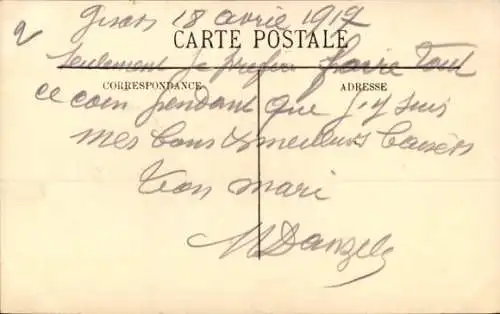 2
Gisors 18 avril 1917
CARTE POSTALE
seulement je préfère faire tout
CORRESPONDANCE ADRESSE
ce coin pendant que j'y suis
mes bons & meilleurs baisers
ton mari